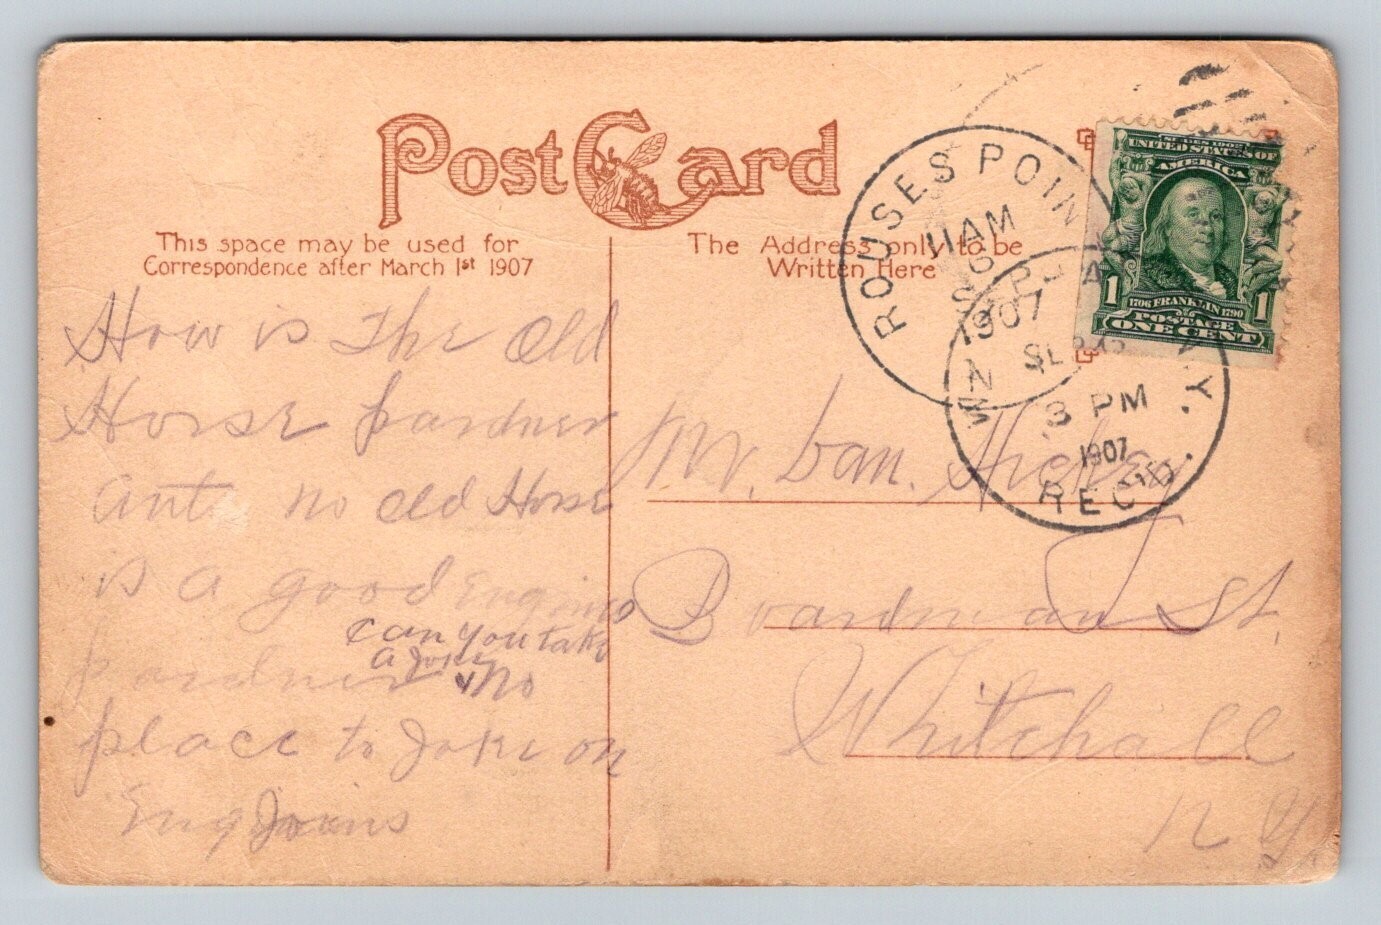 Post Card
This space may be used for
Correspondence after March 1st 1907
The Address only to be
Written Here
How is The Old
Horse pardner
anto no old Horse
is a good Engines
can you take
a joke
pardner No
place to Joke on
Mr. Dan.
Boardman St.
Whitehall
N Y
ROUSES POINT
11 AM
SEP
1907
SEP
3 PM
1907
REC'D.
N.Y.
SERIES 1902
UNITED STATES OF
AMERICA
1706 FRANKLIN 1790
POSTAGE
1 ONE CENT 1